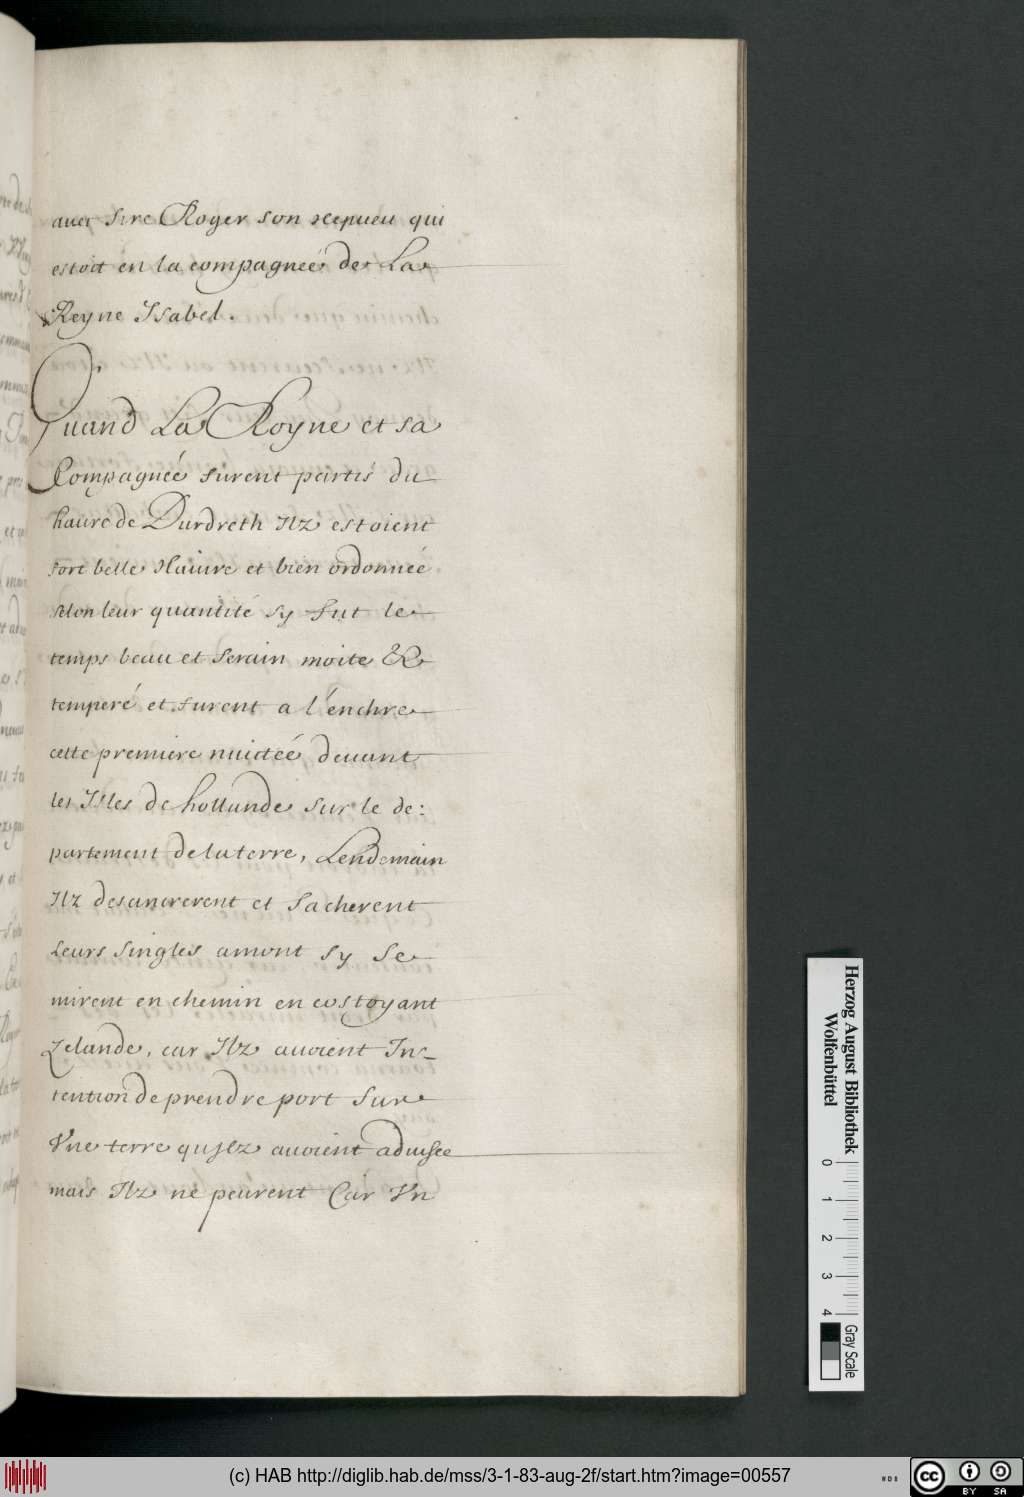 auec Sire Roger son nepueu qui
estoit en la compagneé de La
Reyne Isabel.
Quand La Royne et sa
Compagneé furent partis du
haure de Durdreth Ilz estoient
fort belle Nauire et bien ordonneé
selon leur quantité sy fut le
temps beau et serain moite &
temperé et furent a l'enchre
cette premiere nuicteé deuant
les Isles de hollande sur le de:
partement de la terre, Lendemain
Ilz desancrerent et sacherent
Leurs singles amont sy se
mirent en chemin en costoyant
Zelande, car Ilz auoient In-
tention de prendre port sur
Vne terre qu'Ilz auoient aduisee
mais Ilz ne peurent Car Vn
Herzog August Bibliothek
Wolfenbüttel
0 1 2 3 4
Gray Scale
(c) HAB http://diglib.hab.de/mss/3-1-83-aug-2f/start.htm?image=00557
WDB
cc BY SA